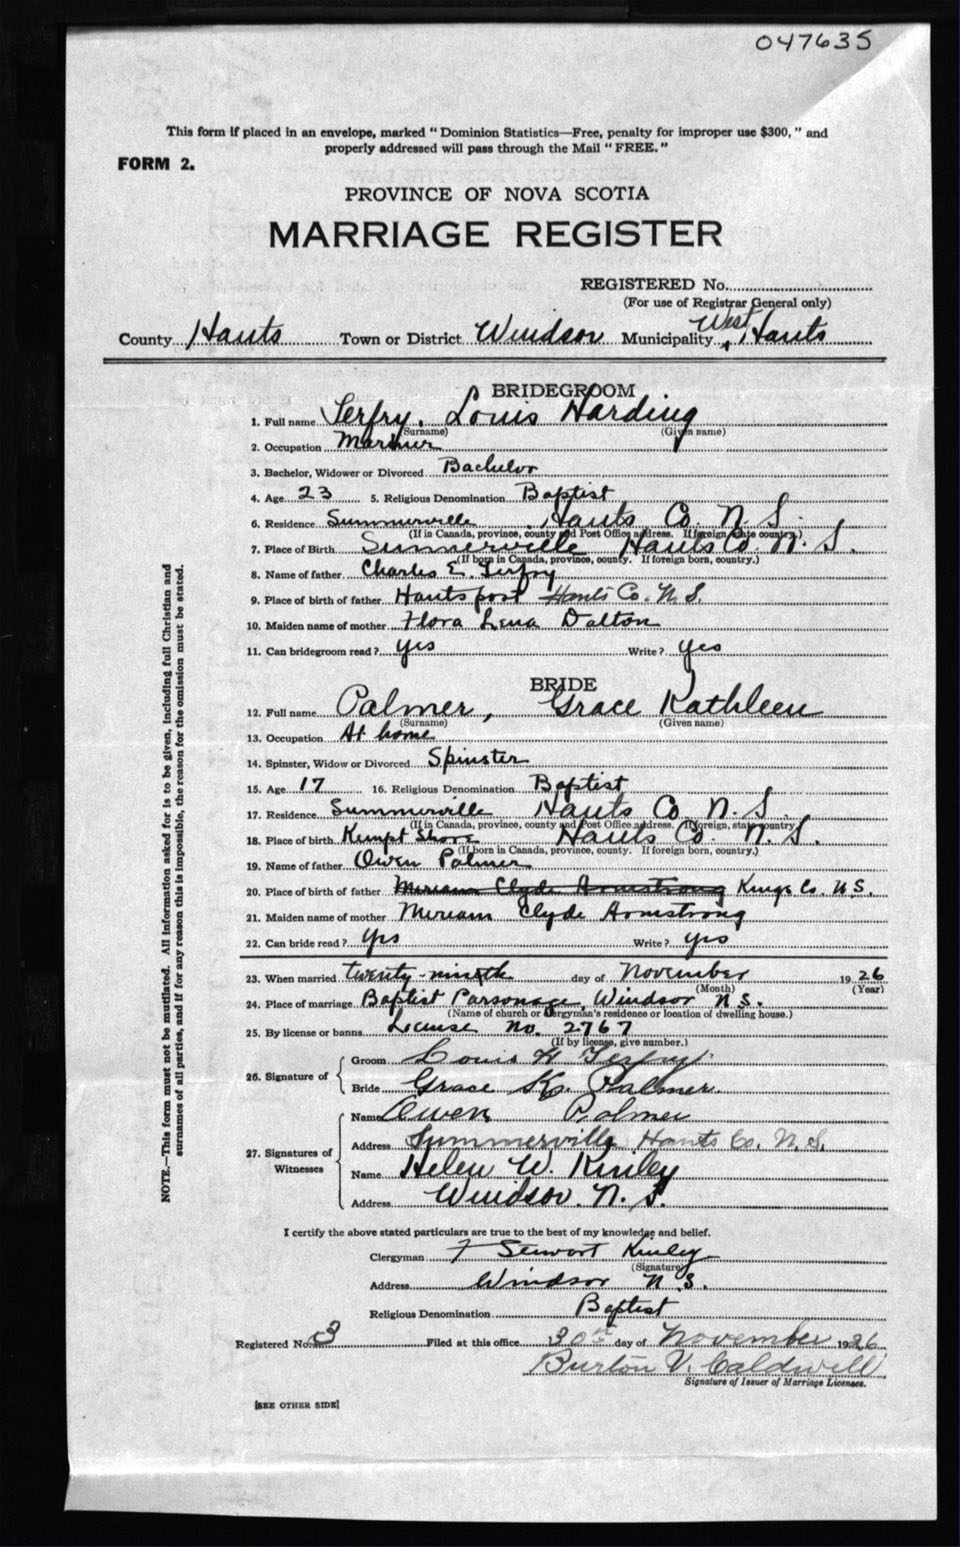 047635
This form if placed in an envelope, marked " Dominion Statistics—Free, penalty for improper use $300, " and
properly addressed will pass through the Mail " FREE. "
FORM 2.
PROVINCE OF NOVA SCOTIA
MARRIAGE REGISTER
REGISTERED No.
(For use of Registrar General only)
County Hants Town or District Windsor Municipality West Hants
BRIDEGROOM
1. Full name Terfry, Louis Harding
(Surname) (Given name)
2. Occupation Mariner
3. Bachelor, Widower or Divorced Bachelor
4. Age 23 5. Religious Denomination Baptist
6. Residence Summerville Hants Co. N. S.
(If in Canada, province, county and Post Office address. If foreign, state country.)
7. Place of Birth Summerville Hants Co. N. S.
(If born in Canada, province, county. If foreign born, country.)
8. Name of father Charles E. Terfry
9. Place of birth of father Hantsport Hants Co. N. S.
10. Maiden name of mother Flora Lena Dalton
11. Can bridegroom read? yes Write? yes
BRIDE
12. Full name Palmer, Grace Kathleen
(Surname) (Given name)
13. Occupation At home
14. Spinster, Widow or Divorced Spinster
15. Age 17 16. Religious Denomination Baptist
17. Residence Summerville Hants Co N. S.
(If in Canada, province, county and Post Office address. If foreign, state country)
18. Place of birth Kempt Shore Hants Co. N. S.
(If born in Canada, province, county. If foreign born, country.)
19. Name of father Owen Palmer
20. Place of birth of father Miriam Clyde Armstrong Kings Co. N.S.
21. Maiden name of mother Miriam Clyde Armstrong
22. Can bride read? yes Write? yes
23. When married twenty-ninth day of November 1926
(Month) (Year)
24. Place of marriage Baptist Parsonage, Windsor N S.
(Name of church or clergyman's residence or location of dwelling house.)
25. By license or banns License No. 2767
(If by license, give number.)
26. Signature of Groom Louis H Terfry
Bride Grace K. Palmer
27. Signatures of Witnesses Name Owen Palmer
Address Summerville Hants Co. N. S.
Name Helen W. Kinley
Address Windsor. N. S.
I certify the above stated particulars are true to the best of my knowledge and belief.
Clergyman F Stewart Kinley
(Signature)
Address Windsor N. S.
Religious Denomination Baptist
Registered No. 3 Filed at this office 30th day of November 1926
Burton V. Caldwell
Signature of Issuer of Marriage Licenses.
[SEE OTHER SIDE]
NOTE.—This form must not be mutilated. All information asked for is to be given, including full Christian and
surnames of all parties, and if for any reason this is impossible, the reason for the omission must be stated.